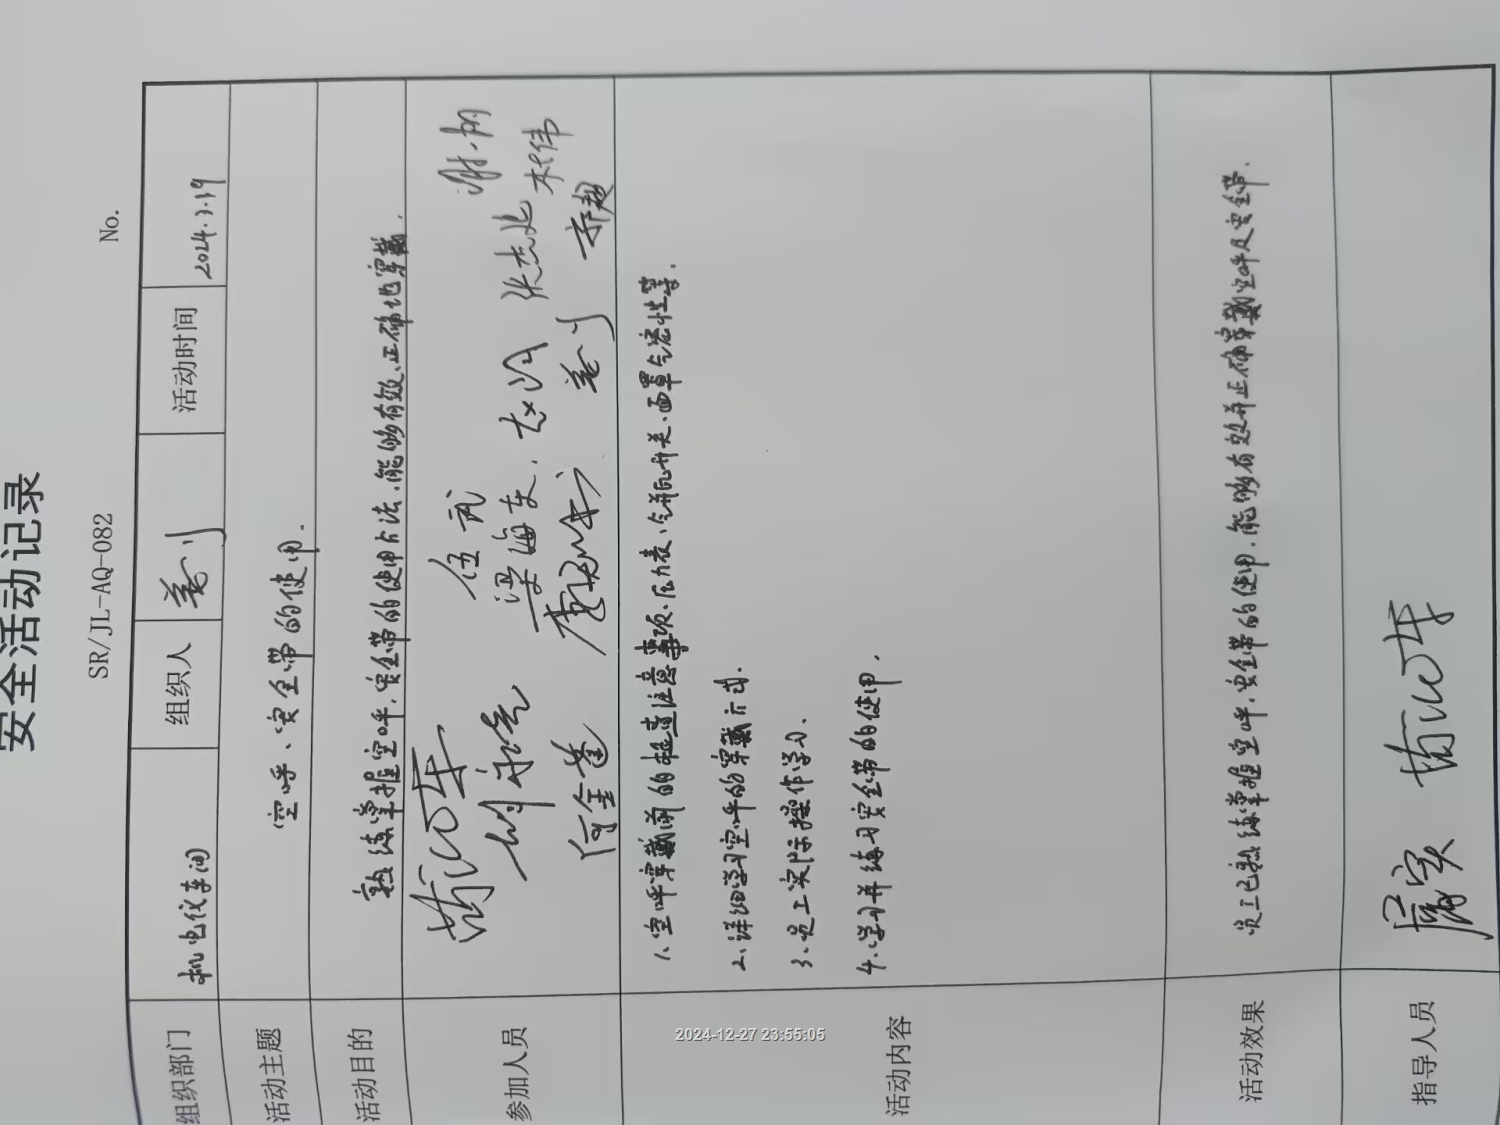 安全活动记录
SR/JL-AQ-082
No.
组织部门 机电仪车间 组织人 活动时间
活动主题 空呼、安全带的使用.
活动目的 熟练掌握空呼,安全带的使用方法,能够有效、正确地穿戴.
参加人员
伍武
梁海东. 张志龙 李伟
何金莲 乔超
活动内容
1、空呼穿戴前的检查注意事项、压力表、气瓶开关、面罩气密性等.
2、详细学习空呼的穿戴方式.
3、员工实际操作学习.
4、学习并练习安全带的使用.
活动效果 员工已熟练掌握空呼,安全带的使用,能够有效并正确穿戴空呼及安全带.
指导人员
2024-12-27 23:55:05